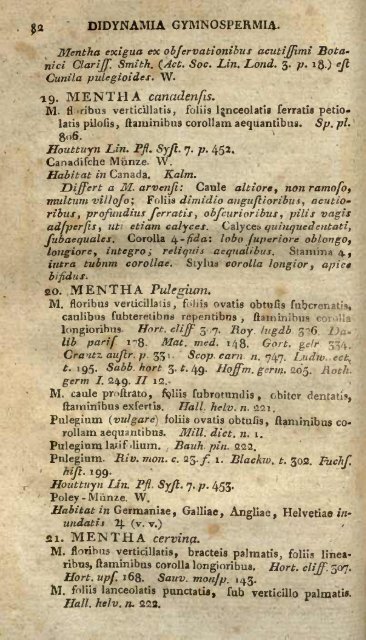 82 DIDYNAMIA GYMNOSPERMIA.
Mentha exigua ex obſervationibus acutiſſimi Bota-
nici Clariſſ. Smith. (Act. Soc. Lin. Lond. 3. p. 18.) eſt
Cunila pulegioides. W.
19. MENTHA canadenſis.
M. floribus verticillatis, foliis lanceolatis ſerratis petio-
latis piloſis, ſtaminibus corollam aequantibus. Sp. pl.
806.
Houttuyn Lin. Pfl. Syſt. 7. p. 452.
Canadiſche Münze. W.
Habitat in Canada. Kalm.
Differt a M. arvenſi: Caule altiore, non ramoſo,
multum villoſo; Foliis dimidio anguſtioribus, acutio-
ribus, profundius ſerratis, obſcurioribus, pilis vagis
adſperſis, uti etiam calyces. Calyces quinquedentati,
ſubaequales. Corolla 4-fida: lobo ſuperiore oblongo,
longiore, integro; reliquis aequalibus. Stamina 4,
intra tubum corollae. Stylus corolla longior, apice
bifidus.
20. MENTHA Pulegium.
M. floribus verticillatis, foliis ovatis obtuſis ſubcrenatis,
caulibus ſubteretibus repentibus, ſtaminibus corolla
longioribus. Hort. cliff 307. Roy. lugdb 326. Da-
lib pariſ 178. Mat. med. 148. Gort. gelr 334.
Crantz auſtr. p. 331. Scop. carn n. 747. Ludw. ect.
t. 195. Sabb. hort 3. t. 49. Hoffm. germ. 205. Roth.
germ I. 249. II 12.
M. caule proſtrato, foliis ſubrotundis, obiter dentatis,
ſtaminibus exſertis. Hall. helv. n. 221.
Pulegium (vulgare) foliis ovatis obtuſis, ſtaminibus co-
rollam aequantibus. Mill. dict. n. 1.
Pulegium latifolium. Bauh. pin. 222.
Pulegium. Riv. mon. c. 23. f. 1. Blackw. t. 302. Fuchſ.
hiſt. 199.
Houttuyn Lin. Pfl. Syſt. 7. p. 453.
Poley-Münze. W.
Habitat in Germaniae, Galliae, Angliae, Helvetiae in-
undatis ♃ (v. v.)
21. MENTHA cervina.
M. floribus verticillatis, bracteis palmatis, foliis linea-
ribus, ſtaminibus corolla longioribus. Hort. cliff. 307.
Hort. upſ. 168. Sauv. monſp. 143.
M. foliis lanceolatis punctatis, ſub verticillo palmatis.
Hall. helv. n. 222.